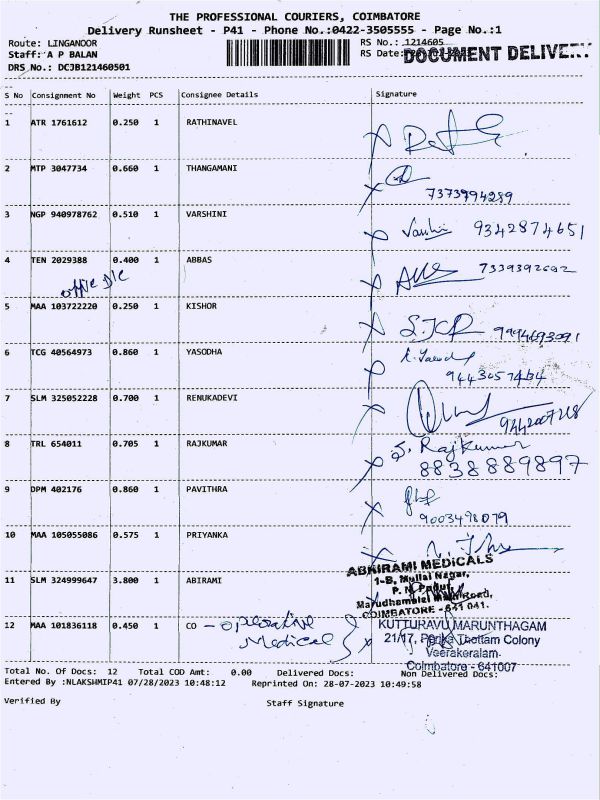 THE PROFESSIONAL COURIERS, COIMBATORE
Delivery Runsheet - P41 - Phone No.:0422-3505555 - Page No.:1
Route: LINGANOOR
RS No.: 1214605
Staff: A P BALAN
RS Date:
DOCUMENT DELIVERY
DRS No.: DCJB121460501
S No Consignment No Weight PCS Consignee Details Signature
1 ATR 1761612 0.250 1 RATHINAVEL
2 MTP 3047734 0.660 1 THANGAMANI
7373994289
3 NGP 940978762 0.510 1 VARSHINI
9342874651
4 TEN 2029388 0.400 1 ABBAS
7339392692
5 MAA 103722220 0.250 1 KISHOR
9994693091
6 TCG 40564973 0.860 1 YASODHA
9443057484
7 SLM 325052228 0.700 1 RENUKADEVI
9442007218
8 TRL 654011 0.705 1 RAJKUMAR
S. Rajkumar
8838889897
9 DPM 402176 0.860 1 PAVITHRA
9003498079
10 MAA 105055086 0.575 1 PRIYANKA
11 SLM 324999647 3.800 1 ABIRAMI
ABHIRAMI MEDICALS
1-B, Mullai Nagar,
P. N. Pudur,
Marudhamalai Main Road,
COIMBATORE - 641 041.
12 MAA 101836118 0.450 1 CO - operative
Medical
KUTTURAVU MARUNTHAGAM
21/17, Thottam Colony
Veerakeralam
Coimbatore - 641007
Total No. Of Docs: 12 Total COD Amt: 0.00 Delivered Docs: Non Delivered Docs:
Entered By :NLAKSHMIP41 07/28/2023 10:48:12 Reprinted On: 28-07-2023 10:49:58
Verified By Staff Signature